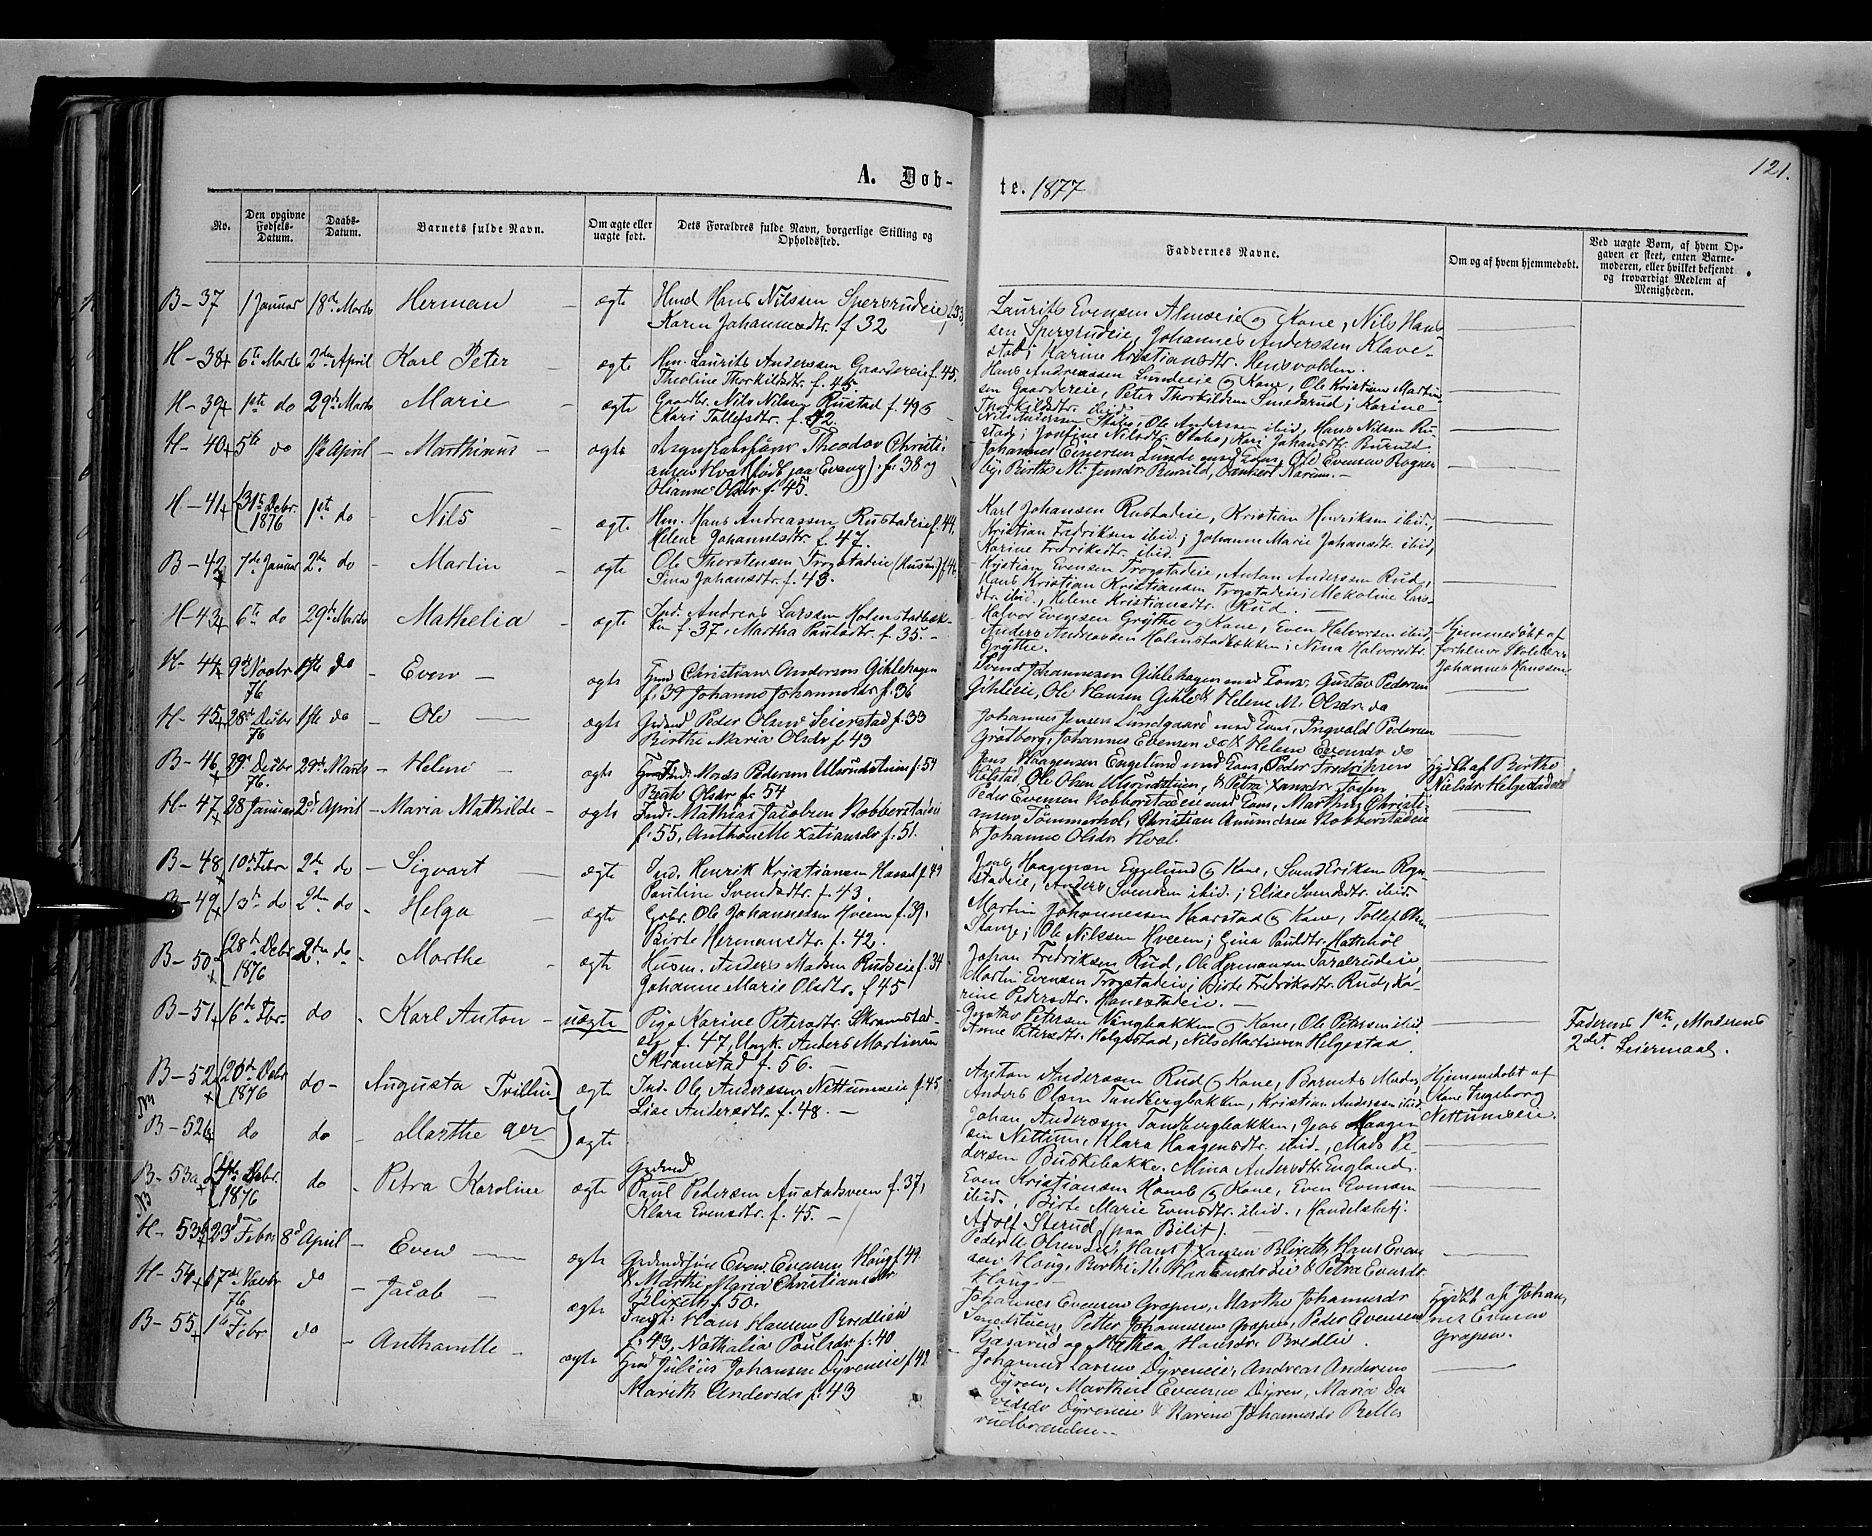 121.
A. Døb-
te. 1877
No.
Den opgivne Fødsels-Datum.
Daabs-Datum.
Barnets fulde Navn.
Om ægte eller uægte født.
Dets Forældres fulde Navn, borgerlige Stilling og Opholdssted.
Faddernes Navne.
Om og af hvem hjemmedøbt.
Ved uægte Børn, af hvem Op-
gaven er skeet, enten Barne-
moderen, eller hvilket bekjendt
og troværdigt Medlem af
Menigheden.
B-37 1 Januar 18de Marts Herman ægte
Karen Johannesdtr. f 32
Laurits Evensen Almseie og Kone, Nils Han-
sen Spersrudeie, Johannes Anderssen Klave-
stad; Karine Kristiansdtr. Hensvolden.
H-38 6te Marts 2den April Karl Peter ægte
Hm. Laurits Anderssen Gaardereie f. 45.
Theoline Thorkildsdtr. f. 45.
Hans Andreassen Lundeeie og Kone, Ole Kristian Martin-
sen Gaardereie, Peter Thorkildsen Smedsrud; Karine
Thorkildsdtr. ibid.
H-39 1ste do 29de Marts Marie ægte
Gaardbr. Nils Nilsen Rustad f. 496
Kari Tollefsdtr. f. 42
Nils Andersen Stabo, Ole Anderssen ibid, Hans Nilsen Ru-
stad; Josefine Nilsdtr. Stabo, Kari Johansdtr.
H-40 5te do 1ste April Marthinus ægte
Theodor Christi-
ansen Hval (født paa Evang) f. 38 og
Olianne Olsdr f. 45.
Johannes Einersen Lunde med Kone, Ole Evensen Rogner-
H-41 31te Debr. 1876 1ste do Nils ægte
Hm. Hans Andreassen Rustadeie f. 44.
Helene Johannesdtr. f. 47.
Karl Johansen Rustadeie, Kristian Henriksen ibid.,
Kristian Fredriksen ibid; Johanne Marie Johansdtr. ibid,
Karine Fredriksdtr. ibid.
B-42 7de Januar 2den do Martin ægte
Ole Thorstensen Trogstadeie (Husm.) f. 46
Lina Johansdtr. f. 43.
Kristian Evensen Trogstadeie, Anton Anderssen Rud,
Hans Kristian Kristiansen Trogstadeie; Mekoline Lars-
dtr. ibid., Helene Kristiansdtr. Rud.
H-43 6te do 29de Marts Mathelia ægte
Ind. Andreas Larssen Holmstadbak-
ken f. 37, Martha Paulsdtr. f. 35.
Halvor Evensen Grythe og Kone, Even Halvorsen ibid,
Anders Andreassen Holmstadbakken; Nina Halvorsdtr.
Grythe.
Hjemmedøbt af
forhenv. Skolelærer
Johannes Hanssen
H-44 9de Novbr 76 1ste do Even ægte
Christian Andersen Gihlehagen
f. 39 Johanne Johannesdr f. 36
Svend Johannessen Gihlehagen med Kone, Gustav Pedersen
Gihleeie, Ole Hansen Gihle & Helene M. Olsdr do
H-45 28de Decbr 76 1ste do Ole ægte
Grdmd Peder Olsen Seierstad f. 33
Birthe Maria Olsdr f. 43
Johannes Jensen Lundgaard med Kone, Ingvald Pedersen
Grøtborg, Johannes Evensen do & Helene Evensdr do
B-46 29de Decbr 76. 29de Marts Helene ægte
Beate Olsdr f. 54
Jens Haagensen Engelund med Kone, Peder Fredriksen
gjødt af Birthe
Nielsdr Helgestadeie
H-47 28 Januar 2d April Maria Mathilde ægte
Ind. Mathias Jacobsen Kobberstadeie
f. 55, Anthonette f. 51.
Peder Evensen Kobberstadeie med Kone, Marthin Christi-
ansen Tømmerhol, Christian Amundsen Kobberstadeie
& Johanne Olsdr Hval.
B-48 10de Febr 2den do Sigvart ægte
Ind. Henrik Kristiansen f. 49
Pauline Svendsdtr. f. 43.
Jens Haagensen Engelund og Kone, Svend Eriksen Rogn-
stadeie, Anders Svendsen ibid.; Elise Svendsdtr. ibid.
B-49 13de do 2den do Helga ægte
Grbr. Ole Johannessen Hveem f. 39,
Birte Hermansdtr. f. 42.
Martin Johannessen Haarstad og Kone, Tollef Olsen
Stange; Ole Nilssen Hveem; Gina Paulsdtr.
B-50 28de Debr 1876 2den do Marthe ægte
Husm. Anders Madsen Rudseie f. 34
Johanne Marie Olsdtr. f 45
Johan Fredriksen Rud, Ole Hermansen Taralrudeie,
Martin Evensen Trogstadeie, Birte Fredriksdtr. Rud, Ka-
rine Pedersdtr.
B-51 16de Febr. do Karl Anton uægte
Pige Karine Petersdtr. Skramstad-
eie f. 47, Ungk. Anders Martinsen
Skramstad f. 56.
Petersen Vangbakken og Kone, Ole Petersen ibid,
Anne Petersdtr. Helgestad, Nils Martinsen Helgestad.
Faderens 1ste, Moderens
2det Leiermaal.
B-52 20de Debr 1876 do Augusta Tvillin- ægte
Ind. Ole Anderssen Nettumeie f. 45
Lise Andersdtr. f. 48.
Anton Anderssen Rud og Kone, Barnets Moder,
Anders Olsen Tandbergbakken, Kristian Anderssen ibid.
Hjemmedøbt af
Kone Ingeborg
Nettumseie.
B-52b do do Marthe ger ægte
Johan Anderssen Tandbergbakken, Jens Haagen-
sen Nettum, Klara Haagensdtr. ibid., Mads Pe-
dersen Buskebakke, Mina Andersdtr. England.
B-53a 4de Debr. 1876 do Petra Karoline ægte
Grdmd
Paul Pedersen Austadsveen f. 37,
Klara Evensdtr. f. 45.
Even Kristiansen og Kone, Even Evensen
ibid., Birte Marie Evensdtr. ibid., Handelsbetj.
Adolf Sterud (paa Bilit).
H-53b 23d Febr. 8d April Even ægte
Even Evensen Haug f 49.
& Marthe Maria Christiansdr
Blixeth f. 50.
Peder Olsen Lie, Hans J. Hansen Blixeth, Hans Even-
sen Haug, & Petra Evensdr
Haug.
H-54 17de Novbr 76 do Jacob ægte
Hans Hansen Bredlien
f. 43, Nathalia Poulsdr f. 40
Johannes Evensen Grøpen, Marthe Johannesdr
Petter Johannesen Grøpen, Peder Evensen
Bjøserud og Mathea Hansdr. Bredlie.
Gjødt af Johan-
nes Evensen
Grøpen.
B-55 1ste Febr do Anthonette ægte
Julius Johansen Dyreneie f 49
Marith Andersdr f. 43
Johannes Larsen Dyreneie, Andreas Andersen
Dyren, Marthin Evensen Dyren, Maria Da-
vidsdr Dyreneie & Karine Johannesdr